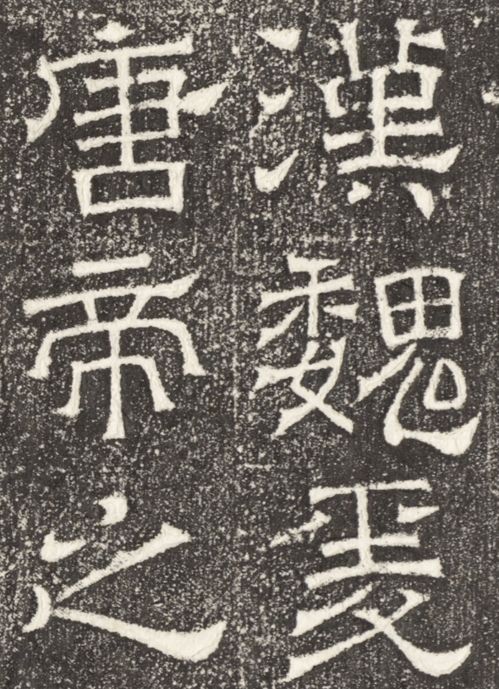 漢魏
唐帝之